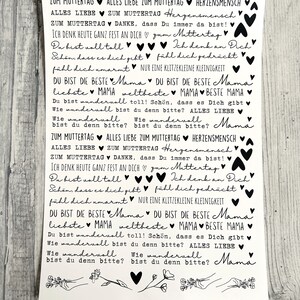 ZUM MUTTERTAG ♥ ALLES LIEBE ZUM MUTTERTAG ♥ HERZENSMENSCH
ALLES LIEBE ♥ ZUM MUTTERTAG Herzensmensch
ZUM MUTTERTAG ♥ DANKE, dass Du immer da bist!
ICH DENK HEUTE GANZ FEST AN DICH ♥ zum Muttertag
Du bist soll toll! Ich denk an Dich
Schön, dass es dich gibt fühl dich gedrückt
fühl dich umarmt ♥ NUR EINE KLITZEKLEINE KLEINIGKEIT
DU BIST DIE BESTE Mama
liebste MAMA weltbeste MAMA BESTE Mama
Du bist wundervoll! toll! Schön, dass es Dich gibt
Wie wundervoll bist du denn bitte? ALLES LIEBE
Wie wundervoll bist du denn bitte? Wie wundervoll bist du denn bitte? Mama
ZUM MUTTERTAG ♥ ALLES LIEBE ZUM MUTTERTAG ♥ HERZENSMENSCH
ALLES LIEBE ♥ ZUM MUTTERTAG Herzensmensch
ZUM MUTTERTAG ♥ DANKE, dass Du immer da bist!
ICH DENK HEUTE GANZ FEST AN DICH ♥ zum Muttertag
Du bist soll toll! Ich denk an Dich
Schön, dass es dich gibt fühl dich gedrückt
fühl dich umarmt ♥ NUR EINE KLITZEKLEINE KLEINIGKEIT
DU BIST DIE BESTE Mama ♥ DU BIST DIE BESTE Mama
liebste MAMA weltbeste MAMA BESTE Mama
Du bist wundervoll! toll! Schön, dass es Dich gibt
Wie wundervoll bist du denn bitte? ALLES LIEBE
Wie wundervoll bist du denn bitte? Wie wundervoll bist du denn bitte? Mama